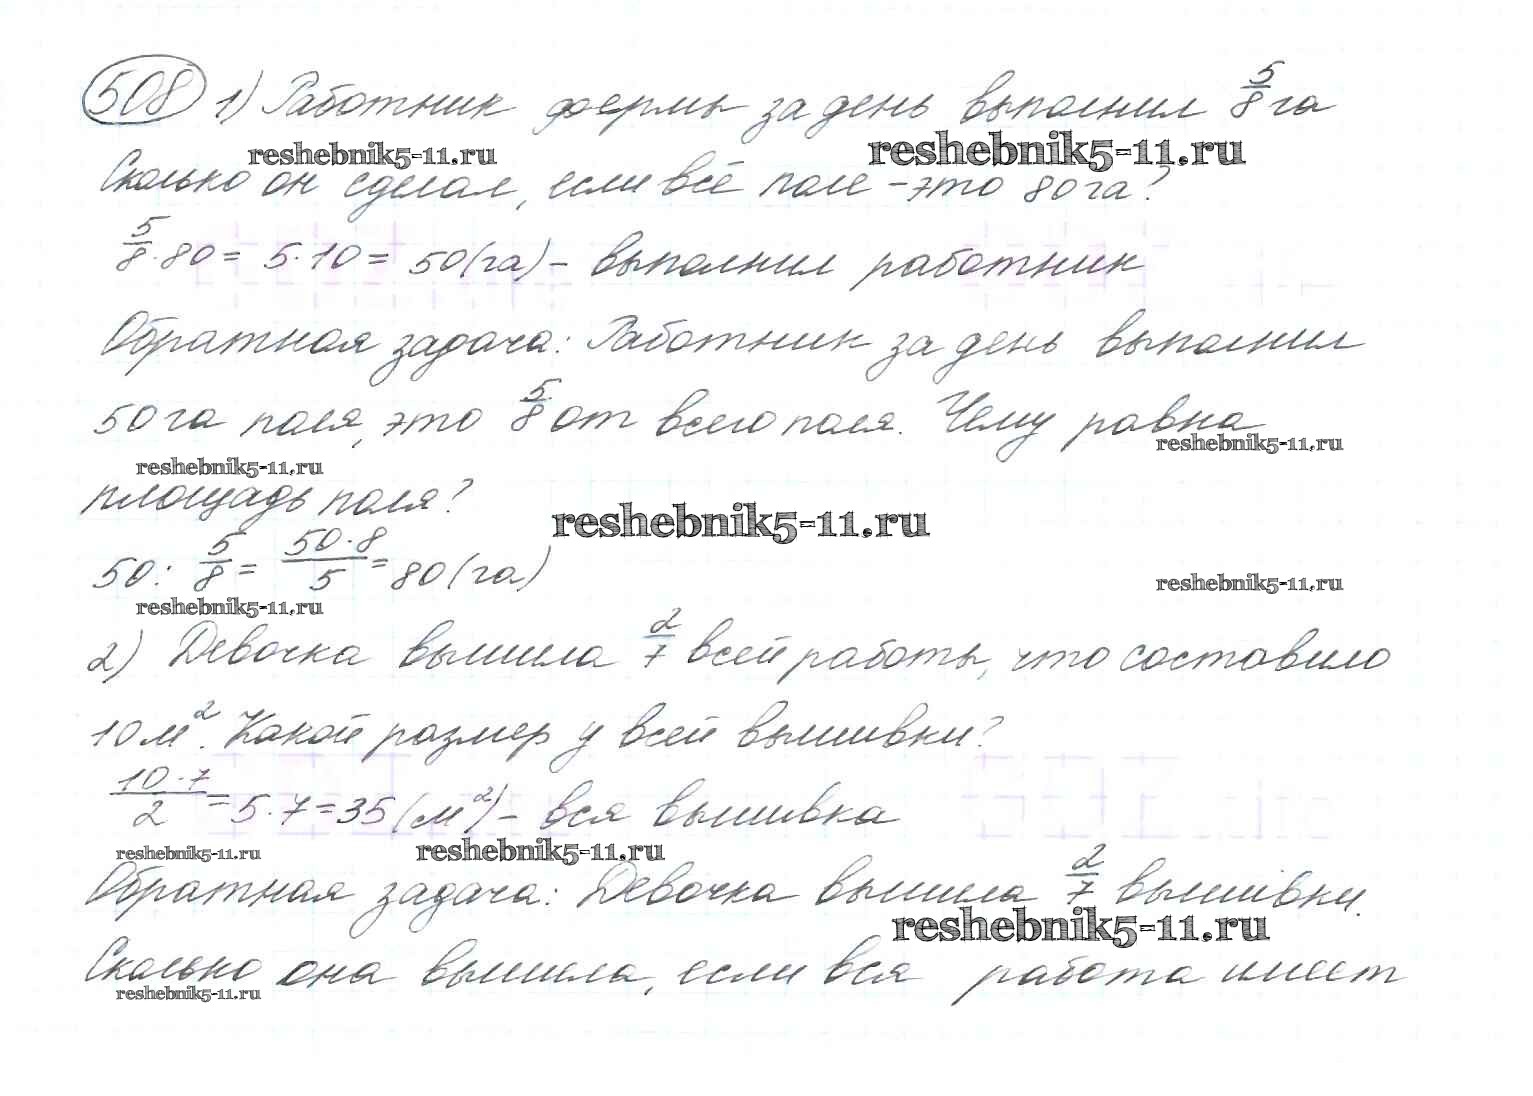 508 1) Работник фермы за день выполнил 5/8 га
reshebnik5-11.ru reshebnik5-11.ru
Сколько он сделал, если всё поле - это 80 га?
5/8 · 80 = 5 · 10 = 50 (га) - выполнил работник
Обратная задача: Работник за день выполнил
50 га поля, это 5/8 от всего поля. Чему равна
reshebnik5-11.ru reshebnik5-11.ru
площадь поля?
reshebnik5-11.ru
50 : 5/8 = 50·8/5 = 80 (га)
reshebnik5-11.ru reshebnik5-11.ru
2) Девочка вышила 2/7 всей работы, что составило
10 м². Какой размер у всей вышивки?
10·7/2 = 5·7 = 35 (м²) - вся вышивка
reshebnik5-11.ru reshebnik5-11.ru
Обратная задача: Девочка вышила 2/7 вышивки.
reshebnik5-11.ru
Сколько она вышила, если вся работа имеет
reshebnik5-11.ru